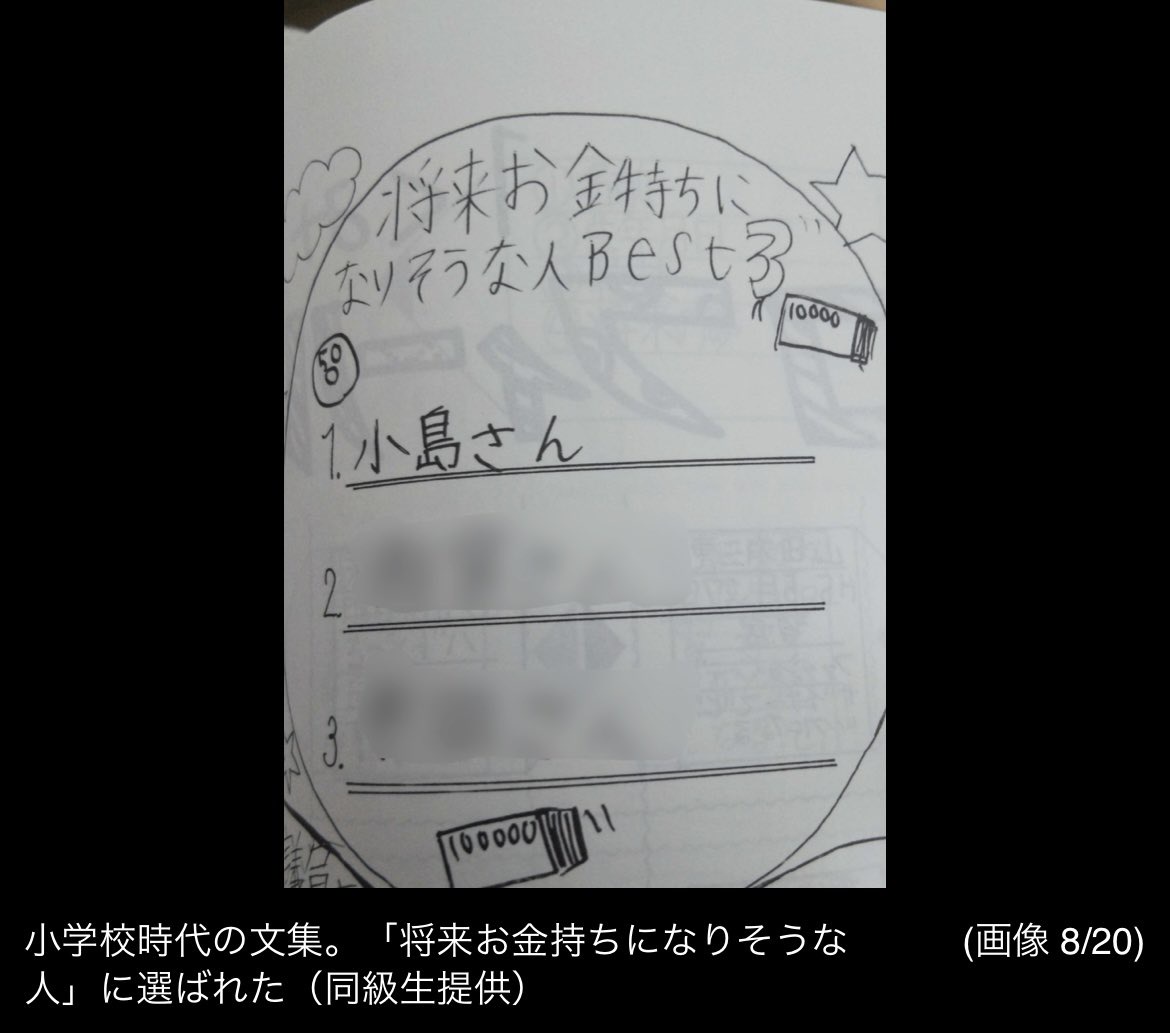 将来お金持ちに
なりそうな人Best3
10000
50
1.小島さん
2.
3.
100000
小学校時代の文集。「将来お金持ちになりそうな
人」に選ばれた（同級生提供）
(画像 8/20)